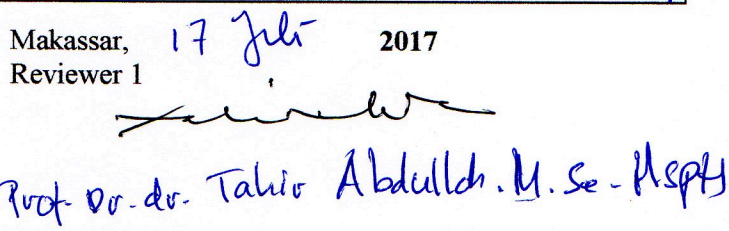 Makassar, 17 Juli 2017
Reviewer 1
Prof. Dr. dr. Tahir Abdullah. M. Sc - MSPH